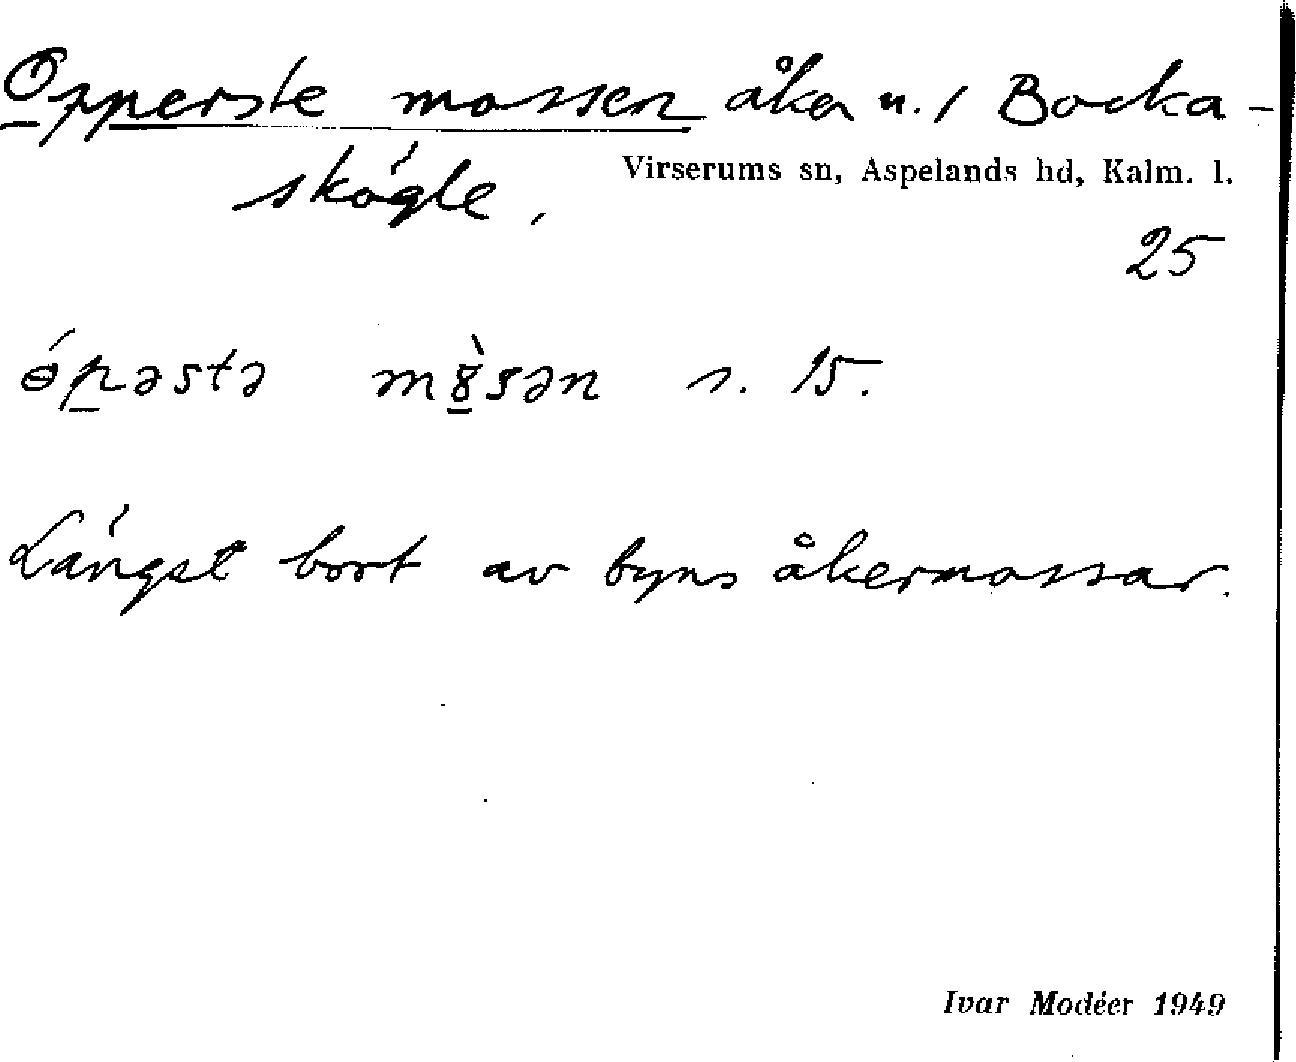 Opperste mossen åker u. / Bocka-
skógle.
Virserums sn, Aspelands hd, Kalm. l.
25
ɵ́pəstə m8̀sən s. 15.
Längst bort av byns åkermossar.
Ivar Modéer 1949